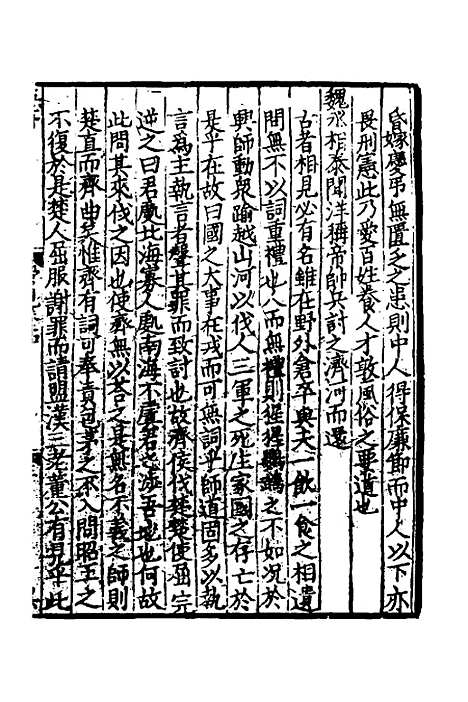 昏嫁慶弔無匱乏之患則中人得保廉節而中人以下亦
畏刑憲此乃愛百姓養人才敦風俗之要道也
魏丞相泰聞洋稱帝帥兵討之濟河而還
古者相見必有名雖在野外倉卒與夫一飲一食之相遺
問無不以詞重禮也人而無禮則猩猩鸚鵡之不如況於
興師動衆踰越山河以伐人三軍之死生家國之存亡於
是乎在故曰國之大事在戎而可無詞乎師道固多以執
言爲主執言者聲其罪而致討也故齊侯伐楚楚使屈完
逆之曰君處北海寡人處南海不虞君之涉吾地也何故
此問其來伐之因也使齊無以荅之是無名不義之師則
楚直而齊曲矣惟齊有詞可奉責包茅之不入問昭王之
不復於是楚人屈服謝罪而請盟漢三老董公有見乎此